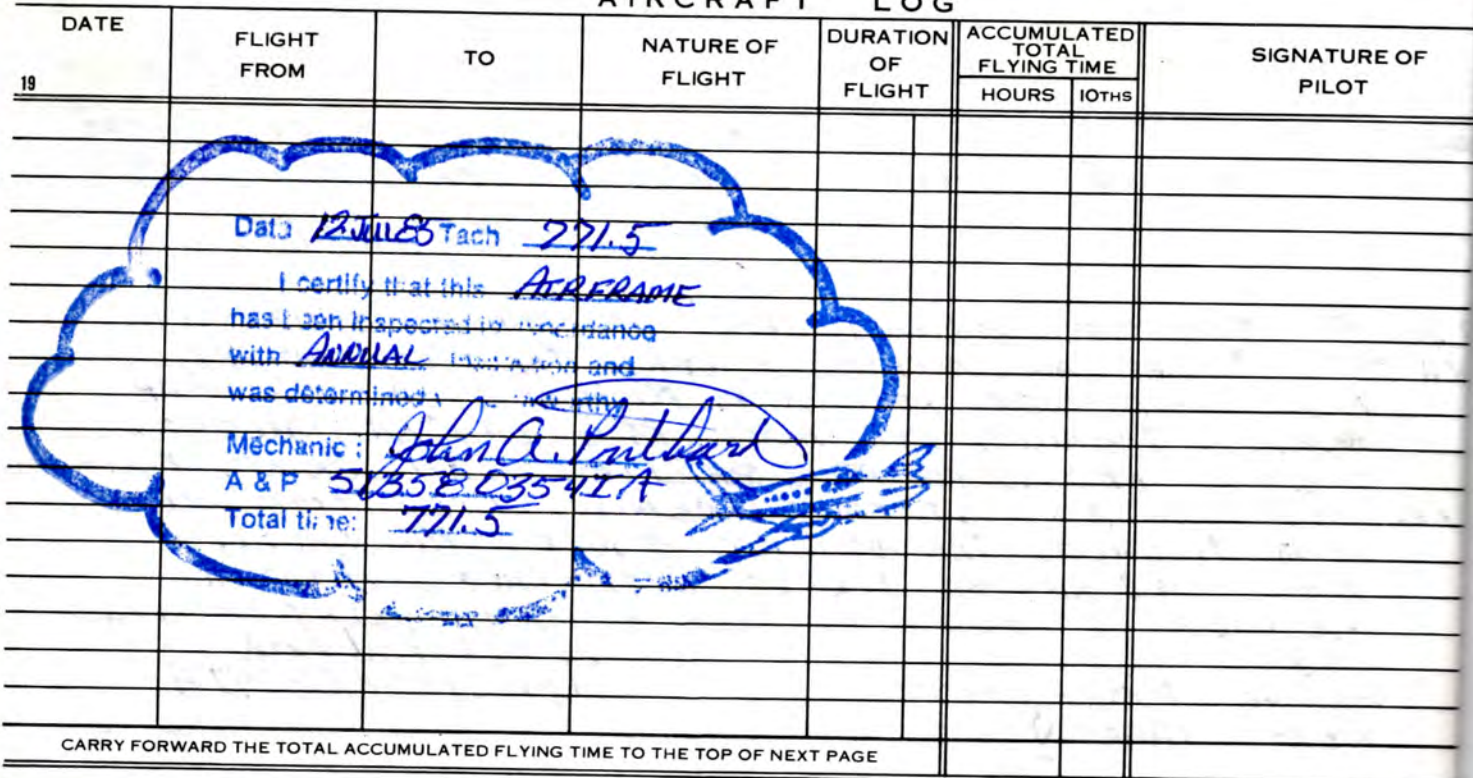 AIRCRAFT LOG
DATE
19
FLIGHT FROM
TO
NATURE OF FLIGHT
DURATION OF FLIGHT
ACCUMULATED TOTAL FLYING TIME
HOURS 10THS
SIGNATURE OF PILOT
Date 12 JUL 85 Tach 771.5
I certify that this AIRFRAME
has been inspected in accordance
with ANNUAL and
was determined
Mechanic: John A.
A & P
Total time: 771.5
CARRY FORWARD THE TOTAL ACCUMULATED FLYING TIME TO THE TOP OF NEXT PAGE